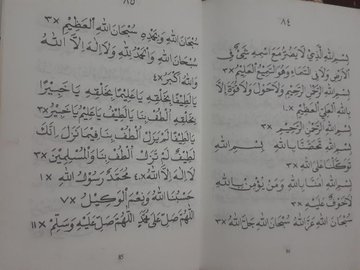 ٨٤
بِسْمِ اللهِ الَّذِيْ لَا يَضُرُّ مَعَ اسْمِهِ شَيْئٌ فِى
الْاَرْضِ وَلَا فِى السَّمَاءِ وَهُوَ السَّمِيْعُ الْعَلِيْمُ ×٣
بِسْمِ اللهِ الرَّحْمٰنِ الرَّحِيْمِ وَلَاحَوْلَ وَلَا قُوَّةَ اِلَّا
بِاللهِ الْعَلِيِّ الْعَظِيْمِ ×١٠
بِسْمِ اللهِ الرَّحْمٰنِ الرَّحِيْمِ ×٣
بِسْمِ اللهِ تَحَصَّنَّا بِاللهِ بِسْمِ اللهِ
تَوَكَّلْنَا عَلَى اللهِ ×٣
بِسْمِ اللهِ اٰمَنَّا بِاللهِ وَمَنْ يُؤْمِنْ بِاللهِ
لَاخَوْفَ عَلَيْهِ ×٣
سُبْحَانَ اللهِ عَزَّ اللهُ سُبْحَانَ اللهِ جَلَّ اللهُ ×٣
٨٥
سُبْحَانَ اللهِ وَبِحَمْدِهِ سُبْحَانَ اللهِ الْعَظِيْمِ ×٣
سُبْحَانَ اللهِ وَالْحَمْدُ لِلّٰهِ وَلَا اِلٰهَ اِلَّا اللهُ
وَاللهُ اَكْبَرُ ×٤
يَا لَطِيْفًا بِخَلْقِهِ يَا عَلِيْمًا بِخَلْقِهِ يَا خَبِيْرًا
بِخَلْقِهِ اُلْطُفْ بِنَا يَا لَطِيْفُ يَا عَلِيْمُ يَا خَبِيْرُ ×٣
يَا لَطِيْفًا لَمْ يَزَلْ اُلْطُفْ بِنَا فِيْمَا نَزَلْ اِنَّكَ
لَطِيْفٌ لَمْ تَزَلْ اُلْطُفْ بِنَا وَالْمُسْلِمِيْنَ ×٣
لَا اِلٰهَ اِلَّا اللهُ ×٤٠ مُحَمَّدٌ رَسُوْلُ اللهِ ×١
حَسْبُنَا اللهُ وَنِعْمَ الْوَكِيْلُ ×٧
اَللّٰهُمَّ صَلِّ عَلَى مُحَمَّدٍ اَللّٰهُمَّ صَلِّ عَلَيْهِ وَسَلِّمْ ×١١
85